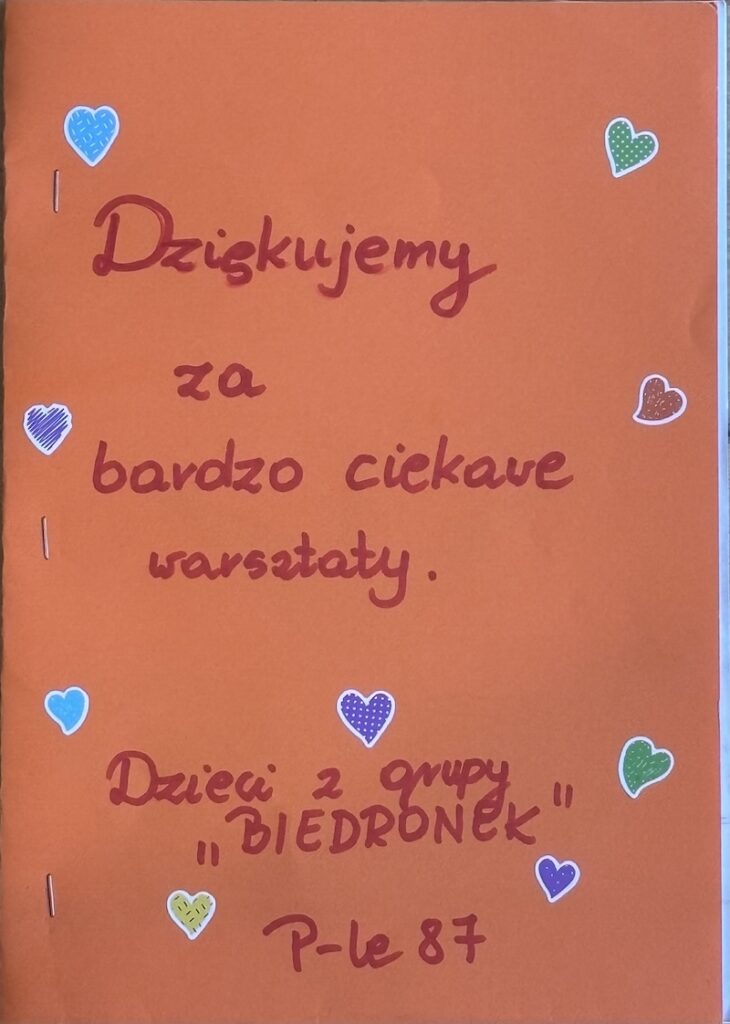 Dziękujemy
za
bardzo ciekawe
warsztaty.
Dzieci z grupy
"BIEDRONEK"
P-le 87